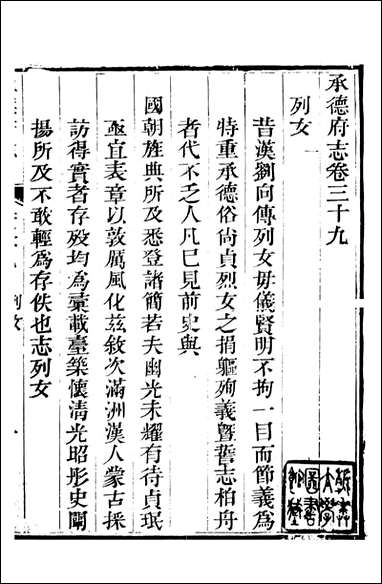 承德府志卷三十九
列女一
昔漢劉向傳列女毋儀賢明不拘一目而節義爲
特重承德俗尚貞烈女之捐軀殉義曁誓志柏舟
者代不乏人凡已見前史與
國朝旌典所及悉登諸簡若夫幽光未耀有待貞珉
亟宜表章以敦厲風化茲敘次滿洲漢人蒙古採
訪得實者存殁均爲彙載臺築懷清光昭彤史闡
揚所及不敢輕爲存佚也志列女